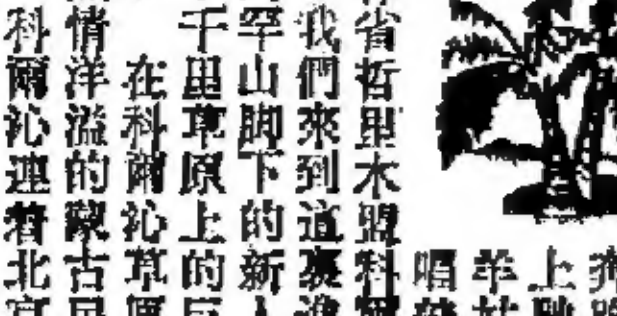 上
羊
唱
省哲里木盟科爾
我們來到這裏
罕山脚下的新人
千里草原上的巨
在科爾沁草原
情洋溢的蒙古民
科爾沁連着北京